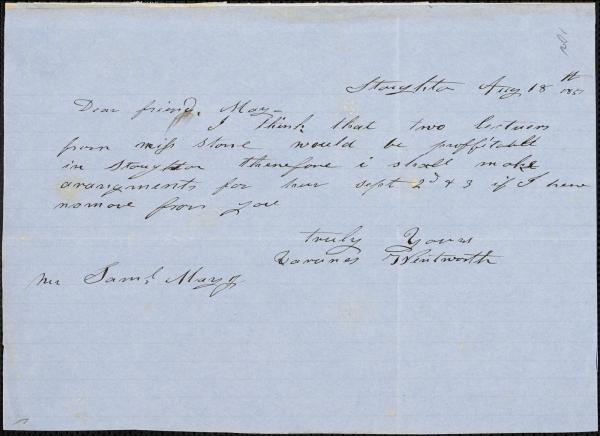 Stoughton Aug 18th 1851
Dear friend, May-
I think that two lectuers
from miss stone would be proffitabell
in stoughton thenefore i shall make
arangements for hur sept 2d & 3 if I here
nomore from you
truly Yours
Wentworth
Mr Saml May Jr